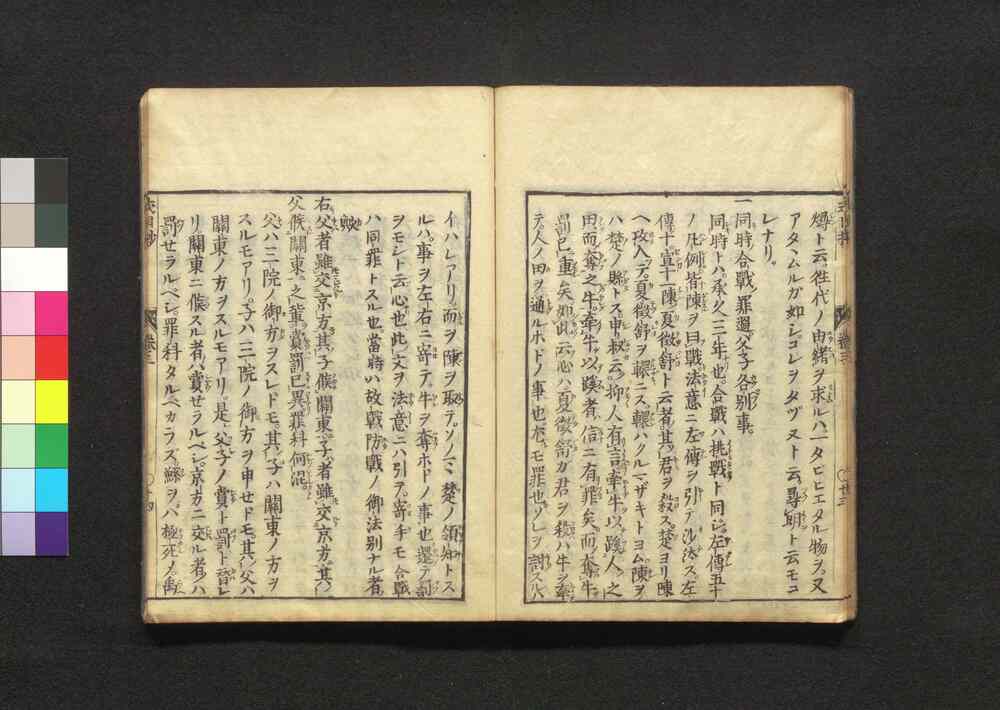 燖ト云往代ノ由緒ヲ求ルハ一タビヒエタル物ヲ又
アタヽムルガ如シコレヲタヅヌト云尋朝ト云モコ
レナリ。
一同時合戰罪過父子各別事。
同時トハ承久三年也合戰ハ挑戰ト同シ左傳五十
ノ凡例皆陳ヲ曰戰法意ニ左傳ヲ引テ
傳十宣十一陳夏徴舒ト云者其君ヲ殺ス楚ヨリ陳
ヘ攻入テ夏徴舒ヲ轘ニス轘ハクルマザキトヨム陳ヲ
ハ楚ノ縣トス申叔云抑人有言牽牛以蹊人之
田而奪之牛牽牛以蹊者信ニ有罪矣而奪牛
罰已重矣如此云心ハ夏徴舒ガ君ヲ殺ハ牛ヲ牽
テ人ノ田ヲ通ルホドノ事也尤モ罪也ソレヲ討スル
イハレアリ而ヲ陳ヲ取テソノマヽ楚ノ領知トス
ルハ事ヲ左右ニ寄テ牛ヲ奪ホドノ事也還テ討
ヲモシト云心也此文ヲ法意ニハ引テ寄手モ合戰
ハ同罪トスル也當時ハ故戰防戰ノ御法別ナル者
歟
右父者雖交京方其子候關東子者雖交京方其
父候關東之輩賞罰已異罪科何混
父ハ三院ノ御方ヲスレドモ其子ハ關東ノ方ヲ
スルモアリ子ハ三院ノ御方ヲ申せドモ其父ハ
關東ノ方ヲスルモアリ是父子ノ賞ト罰ト各レ
リ關東ニ候スル者ハ賞せラルベシ京方ニ交ル者ハ
罰せラルベシ罪科タルベカラズ鯀ヲバ極死ノ禹
卷三
卷三